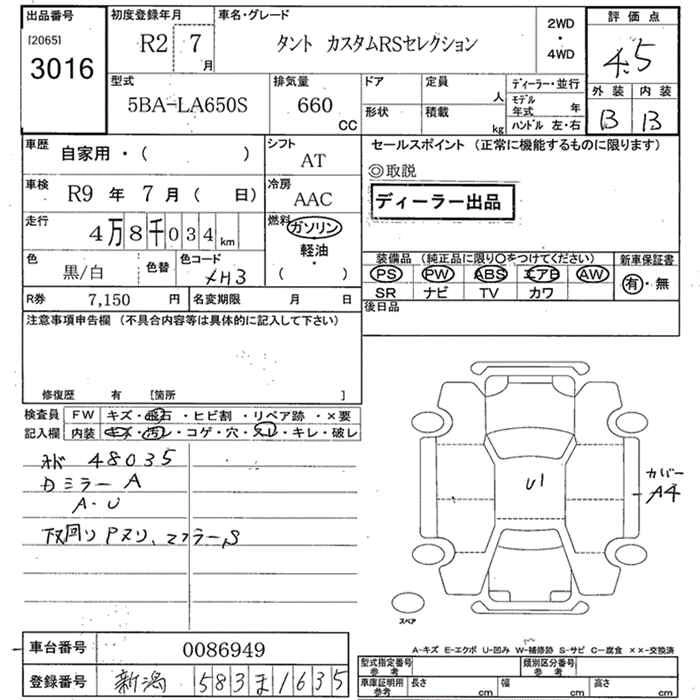 出品番号
[2065]
3016
初度登録年月
R2 7月
車名・グレード
タント カスタムRSセレクション
2WD
・
4WD
評価点
4.5
外装 内装
B B
型式
5BA-LA650S
排気量
660 CC
ドア
定員 人
形状
積載 kg
ディーラー・並行
モデル年式 年
ハンドル 左・右
車歴
自家用・( )
シフト
AT
車検
R9 年 7 月 ( 日)
冷房
AAC
走行
4万8千034 km
燃料
ガソリン
軽油
・
( )
色
黒/白
色替
色コード
XH3
R券 7,150 円
名変期限 月 日
セールスポイント (正常に機能するものに限ります)
◎取説
ディーラー出品
装備品 (純正品に限り○をつけてください)
PS PW ABS エアB AW
SR ナビ TV カワ
新車保証書
有・無
後日品
注意事項申告欄 (不具合内容等は具体的に記入して下さい)
修復歴 有 [箇所 ]
検査員
記入欄
FW キズ・飛石・ヒビ割・リペア跡・×要
内装 キズ・汚レ・コゲ・穴・スレ・キレ・破レ
48035
ミラーA
A・U
下回りPヌリ、マフラーS
U1
カバー
A4
スペア
A-キズ E-エクボ U-凹み W-補修跡 S-サビ C-腐食 ××-交換済
車台番号 0086949
登録番号 新潟 583 ま 1635
型式指定番号
参考
類別区分番号
参考
車庫証明用
参考
長さ cm 幅 cm 高さ cm